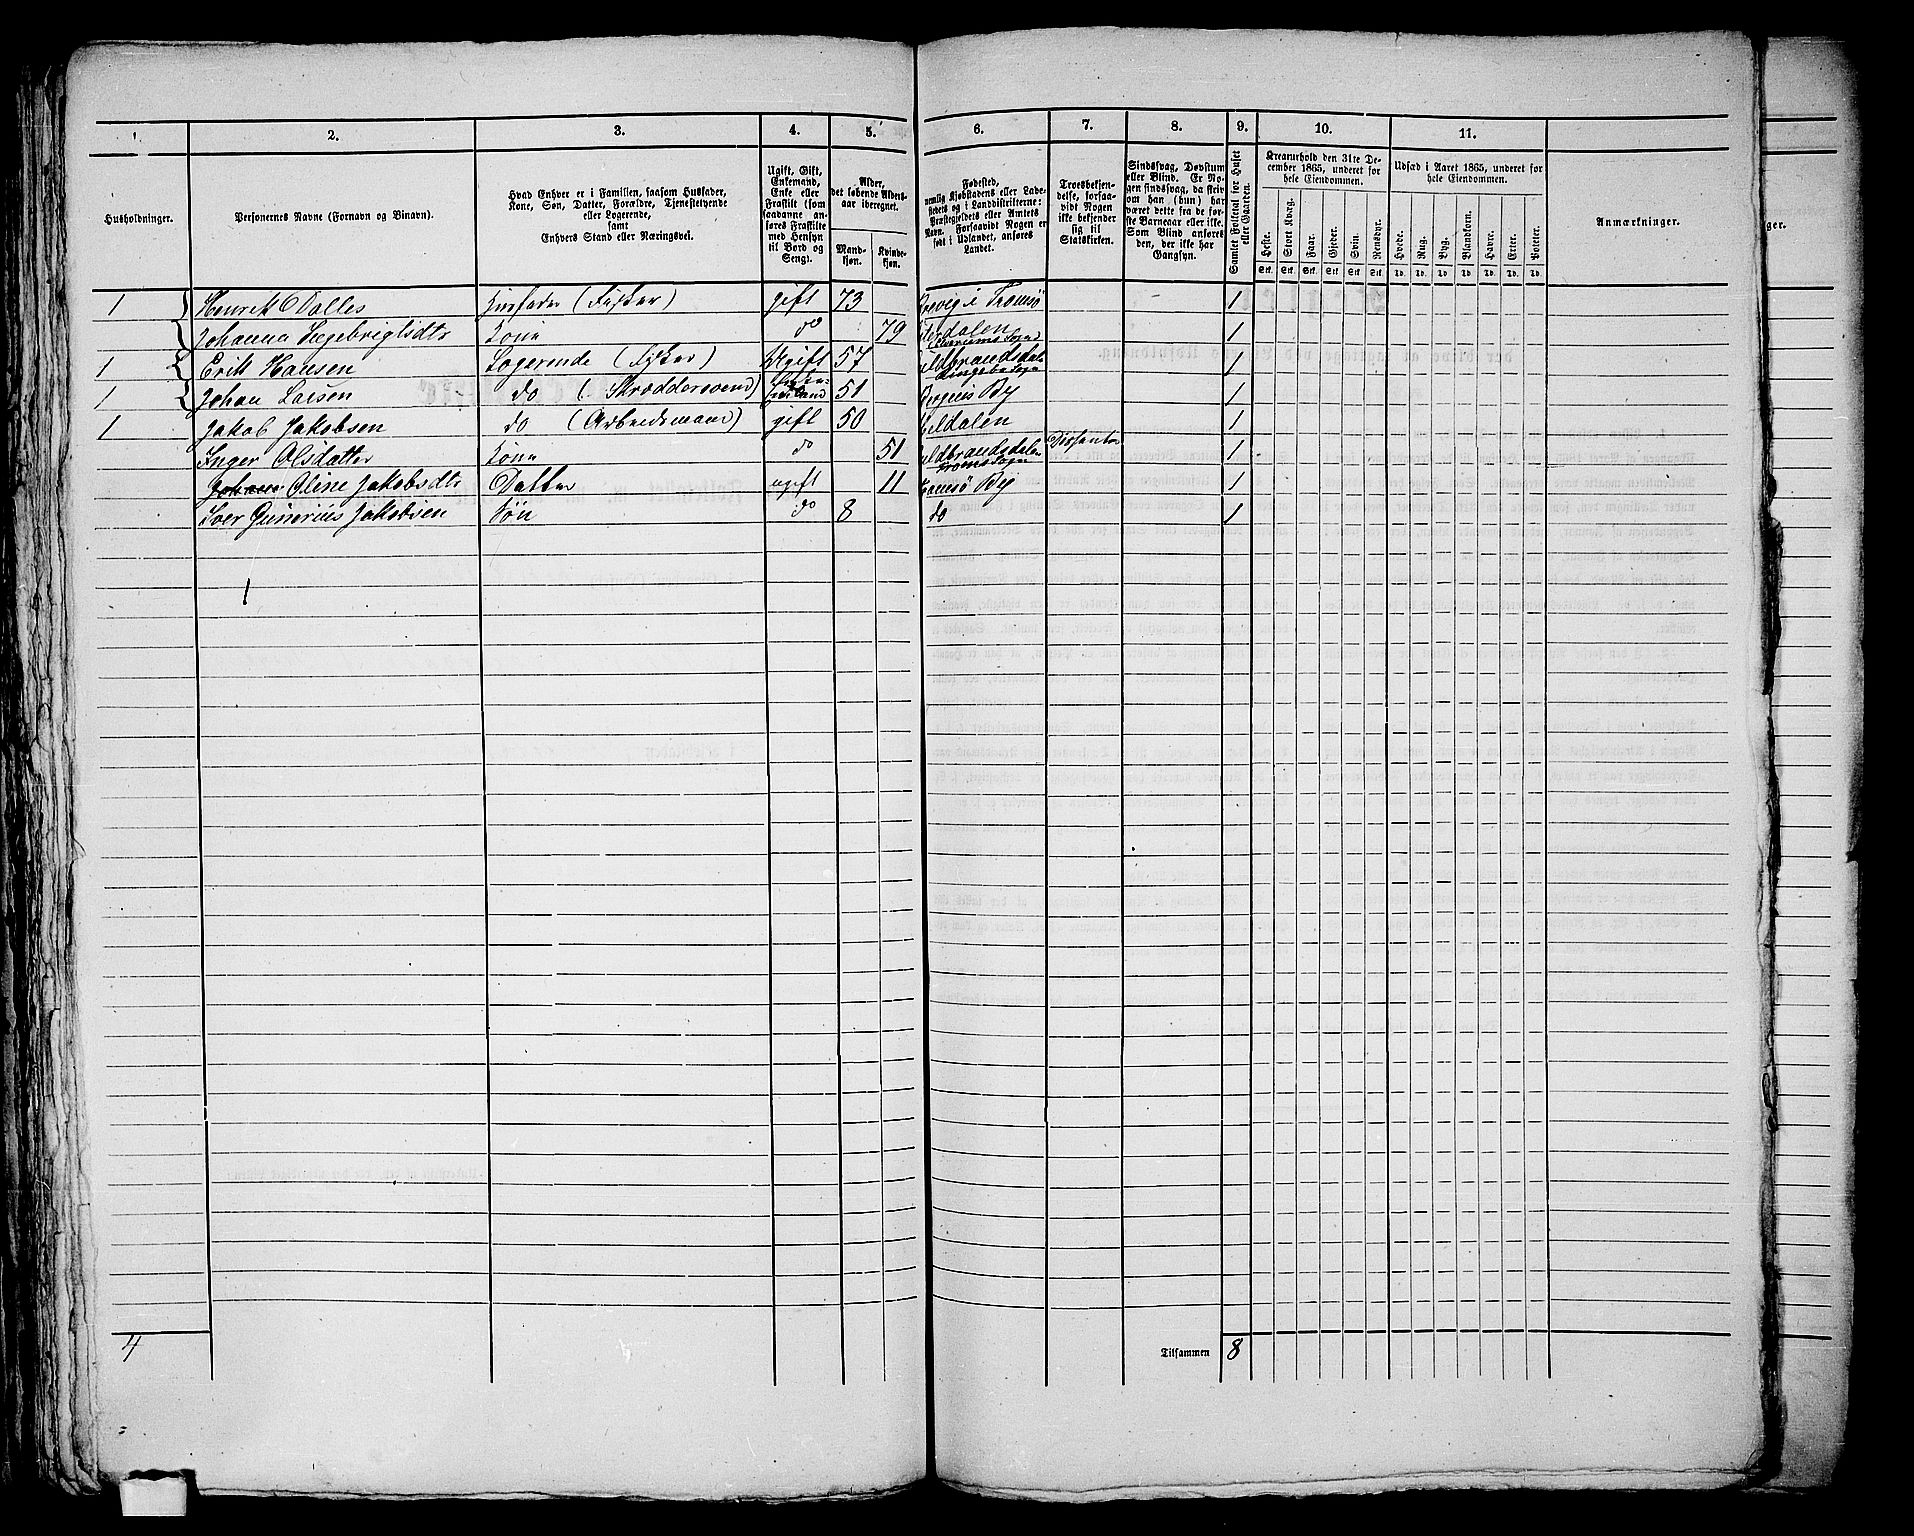 1. 2. 3. 4. 5. 6. 7. 8. 9. 10. 11.
Husholdninger.
Personernes Navne (Fornavn og Binavn).
Hvad Enhver er i Familien, saasom Husfader,
Kone, Søn, Datter, Forældre, Tjenestetyende
eller Logerende,
samt
Enhvers Stand eller Næringsvei.
Ugift, Gift,
Enkemand,
Enke eller
Fraskilt (som
saadanne an-
føres Fraskilte
med Hensyn
til Bord og
Seng).
Alder,
det løbende Alders-
aar iberegnet.
Mand-
kjøn.
Kvinde-
kjøn.
Fødested,
nemlig Kjøbstadens eller Lade-
stedets og i Landdistrikterne:
Præstegjeldets eller Amtets
Navn. Forsaavidt Nogen er
født i Udlandet, anføres
Landet.
Troesbekjen-
delse, forsaa-
vidt Nogen
ikke bekjender
sig til
Statskirken.
Sindssvag, Døvstum
eller Blind. Er No-
gen sindssvag, da skriv
om han (hun) har
været dette fra de før-
ste Barneaar eller ikke.
Som Blind anføres
den, der ikke har
Gangsyn.
Samlet Folketal for Huset
eller Gaarden.
Kreaturhold den 31te De-
cember 1865, underet for
hele Eiendommen.
Heste. Stort Kvæg. Faar. Gjeder. Svin. Rensdyr.
Stk. Stk. Stk. Stk. Stk. Stk.
Udsæd i Aaret 1865, underet for
hele Eiendommen.
Hvede. Rug. Byg. Blandkorn. Havre. Erter. Poteter.
Td. Td. Td. Td. Td. Td. Td.
Anmærkninger.
1 Henrik Dalles Husfader (Fisker) gift 73 i Tromsø 1
Johanna Ingebrigtsdtr Kone do 79 1
1 Erik Hansen Logerende (Fisker) Ugift 57 Guldbrandsdalen Ringebu Sogn 1
1 Johan Larsen do (Skræddersvend) 51 Bergens By 1
1 Jakob Jakobsen do (Arbeidsmand) gift 50 Meldalen 1
Inger Olsdatter Kone do 51 Guldbrandsdalen Froens Sogn Dissenter 1
Johan Oline Jakobsdtr Datter ugift 11 Tromsø By 1
Iver Gunerius Jakobsen Søn do 8 do 1
4 Tilsammen 8